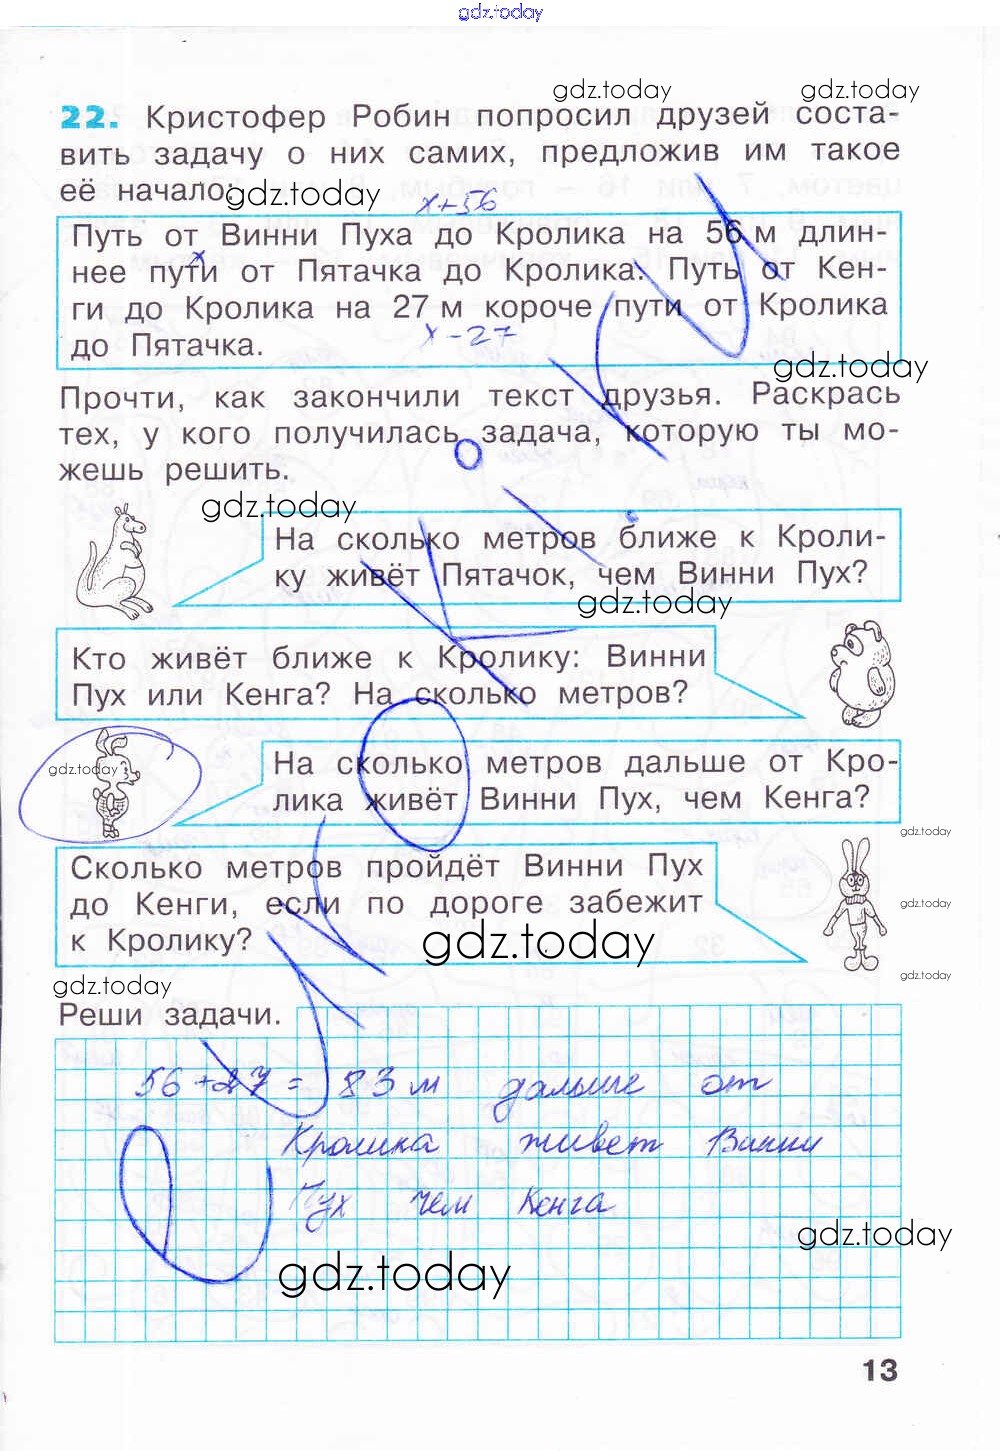 gdz.today
gdz.today
22. Кристофер Робин попросил друзей соста-
вить задачу о них самих, предложив им такое
её начало:
gdz.today
x+56
Путь от Винни Пуха до Кролика на 56 м длин-
x
нее пути от Пятачка до Кролика. Путь от Кен-
ги до Кролика на 27 м короче пути от Кролика
до Пятачка.
x-27
gdz.today
Прочти, как закончили текст друзья. Раскрась
тех, у кого получилась задача, которую ты мо-
жешь решить.
gdz.today
На сколько метров ближе к Кроли-
ку живёт Пятачок, чем Винни Пух?
gdz.today
Кто живёт ближе к Кролику: Винни
Пух или Кенга? На сколько метров?
gdz.today
На сколько метров дальше от Кро-
лика живёт Винни Пух, чем Кенга?
gdz.today
Сколько метров пройдёт Винни Пух
до Кенги, если по дороге забежит
к Кролику?
gdz.today
gdz.today
gdz.today
gdz.today
Реши задачи.
56+27 = 83 м дальше от
Кролика живет Винни
Пух чем Кенга
gdz.today
gdz.today
13